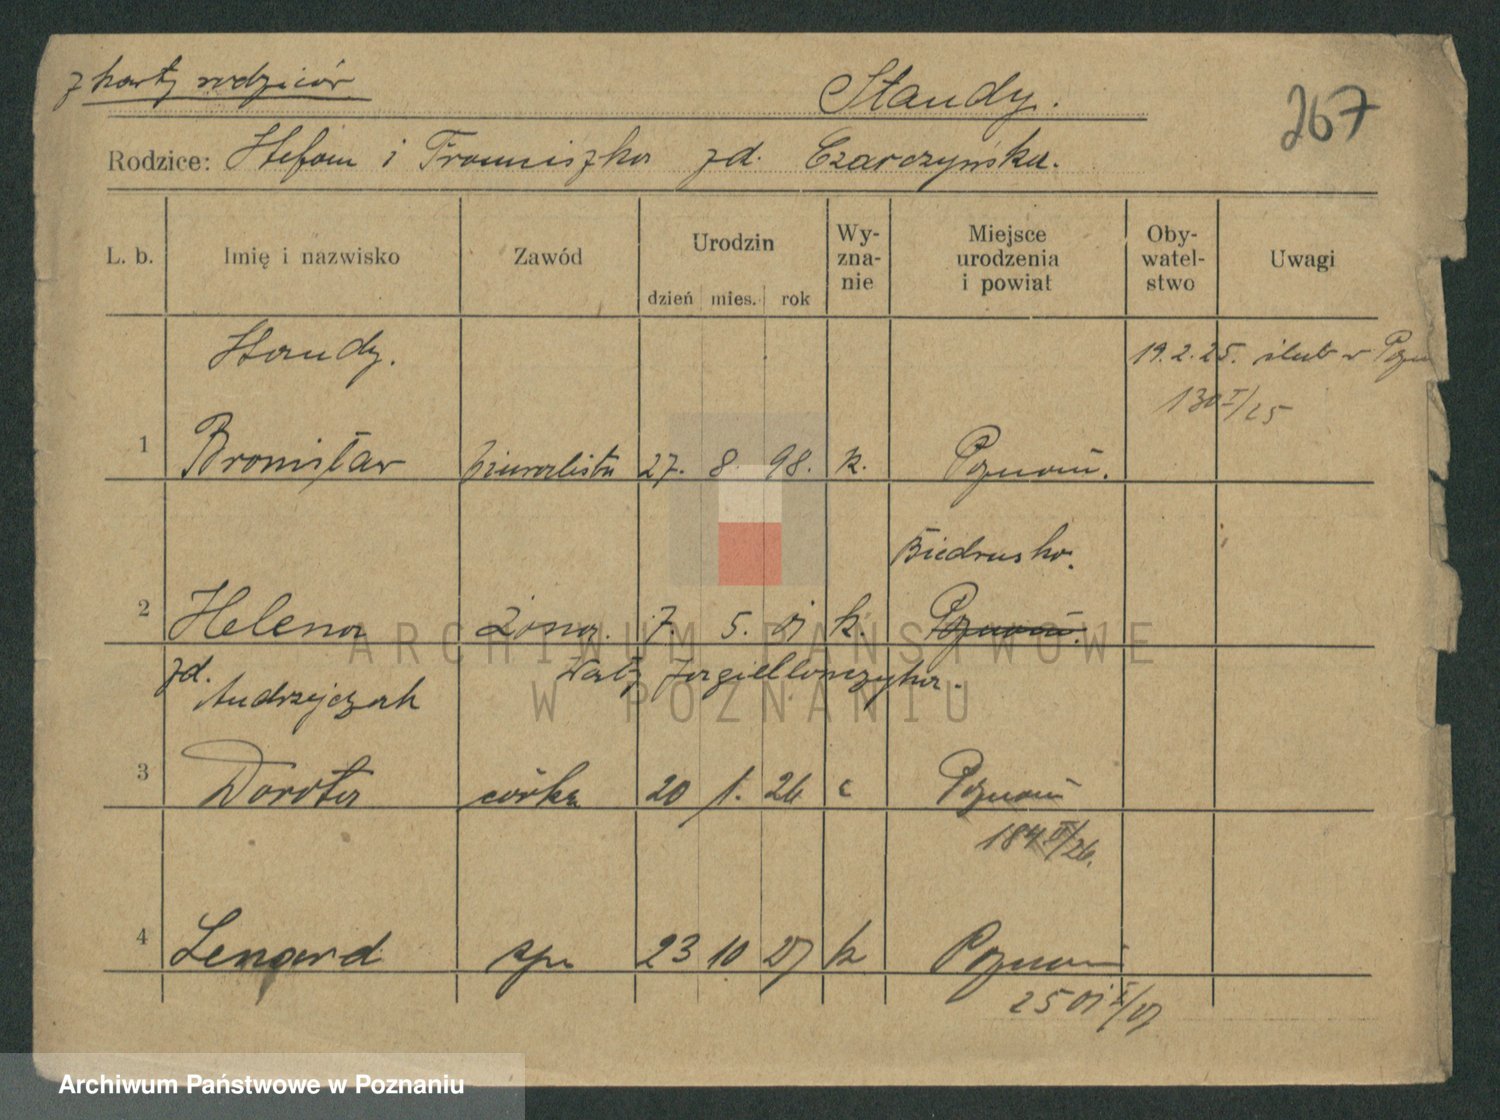 z karty rodziców
Standy.
267
Rodzice: Stefan i Franciszka zd. Czarczyńska.
L. b. Imię i nazwisko Zawód Urodzin dzień mies. rok Wy-zna-nie Miejsce urodzenia i powiat Oby-watel-stwo Uwagi
Standy. 19.2.25. ślub w Pozn
130 I/25
1 Bronisław biuralista 27. 8. 98. k. Poznań.
Biedrusko.
2 Helena żona. 7. 5. 07 k. Poznań.
zd. Andrzejczak Wały Jagiellończyka.
3 Dorota córka 20 1. 26 c Poznań
184 II/26.
4 Lenard syn 23 10 27 k Poznań
2507 X/27
ARCHIWUM PAŃSTWOWE
W POZNANIU
Archiwum Państwowe w Poznaniu